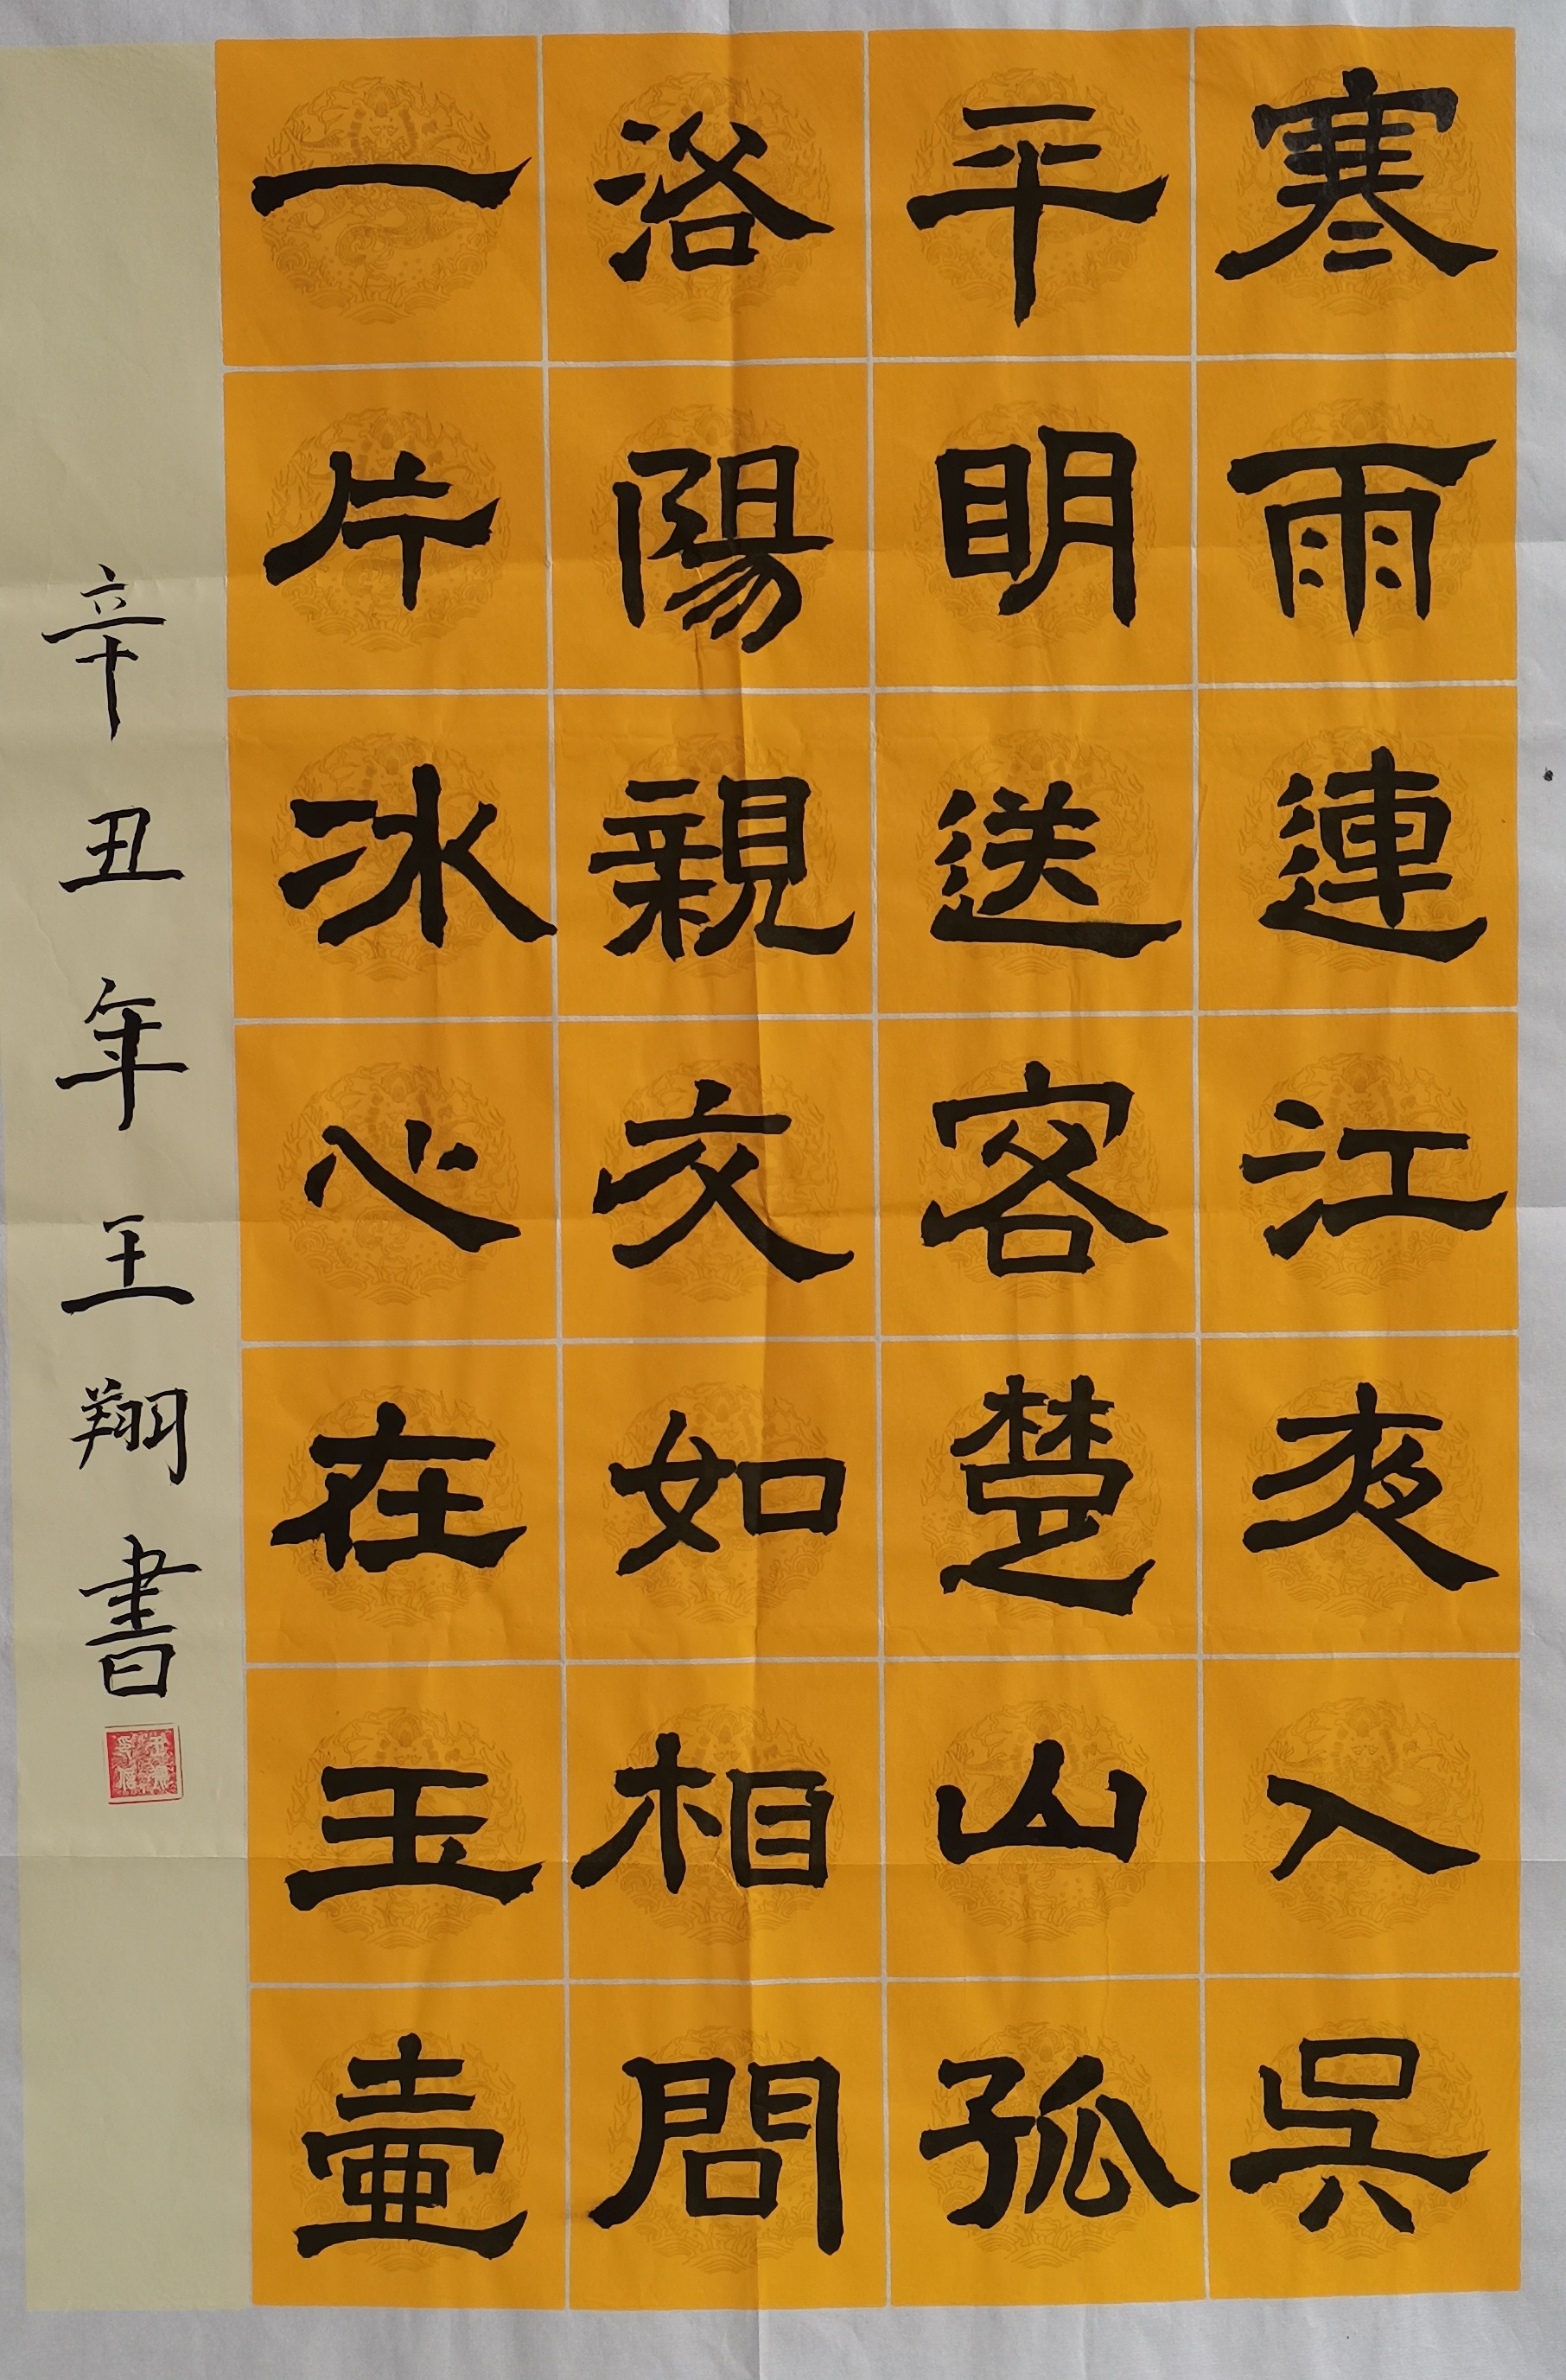 寒雨連江夜入吳
平明送客楚山孤
洛陽親友如相問
一片冰心在玉壺
辛丑年王翔書